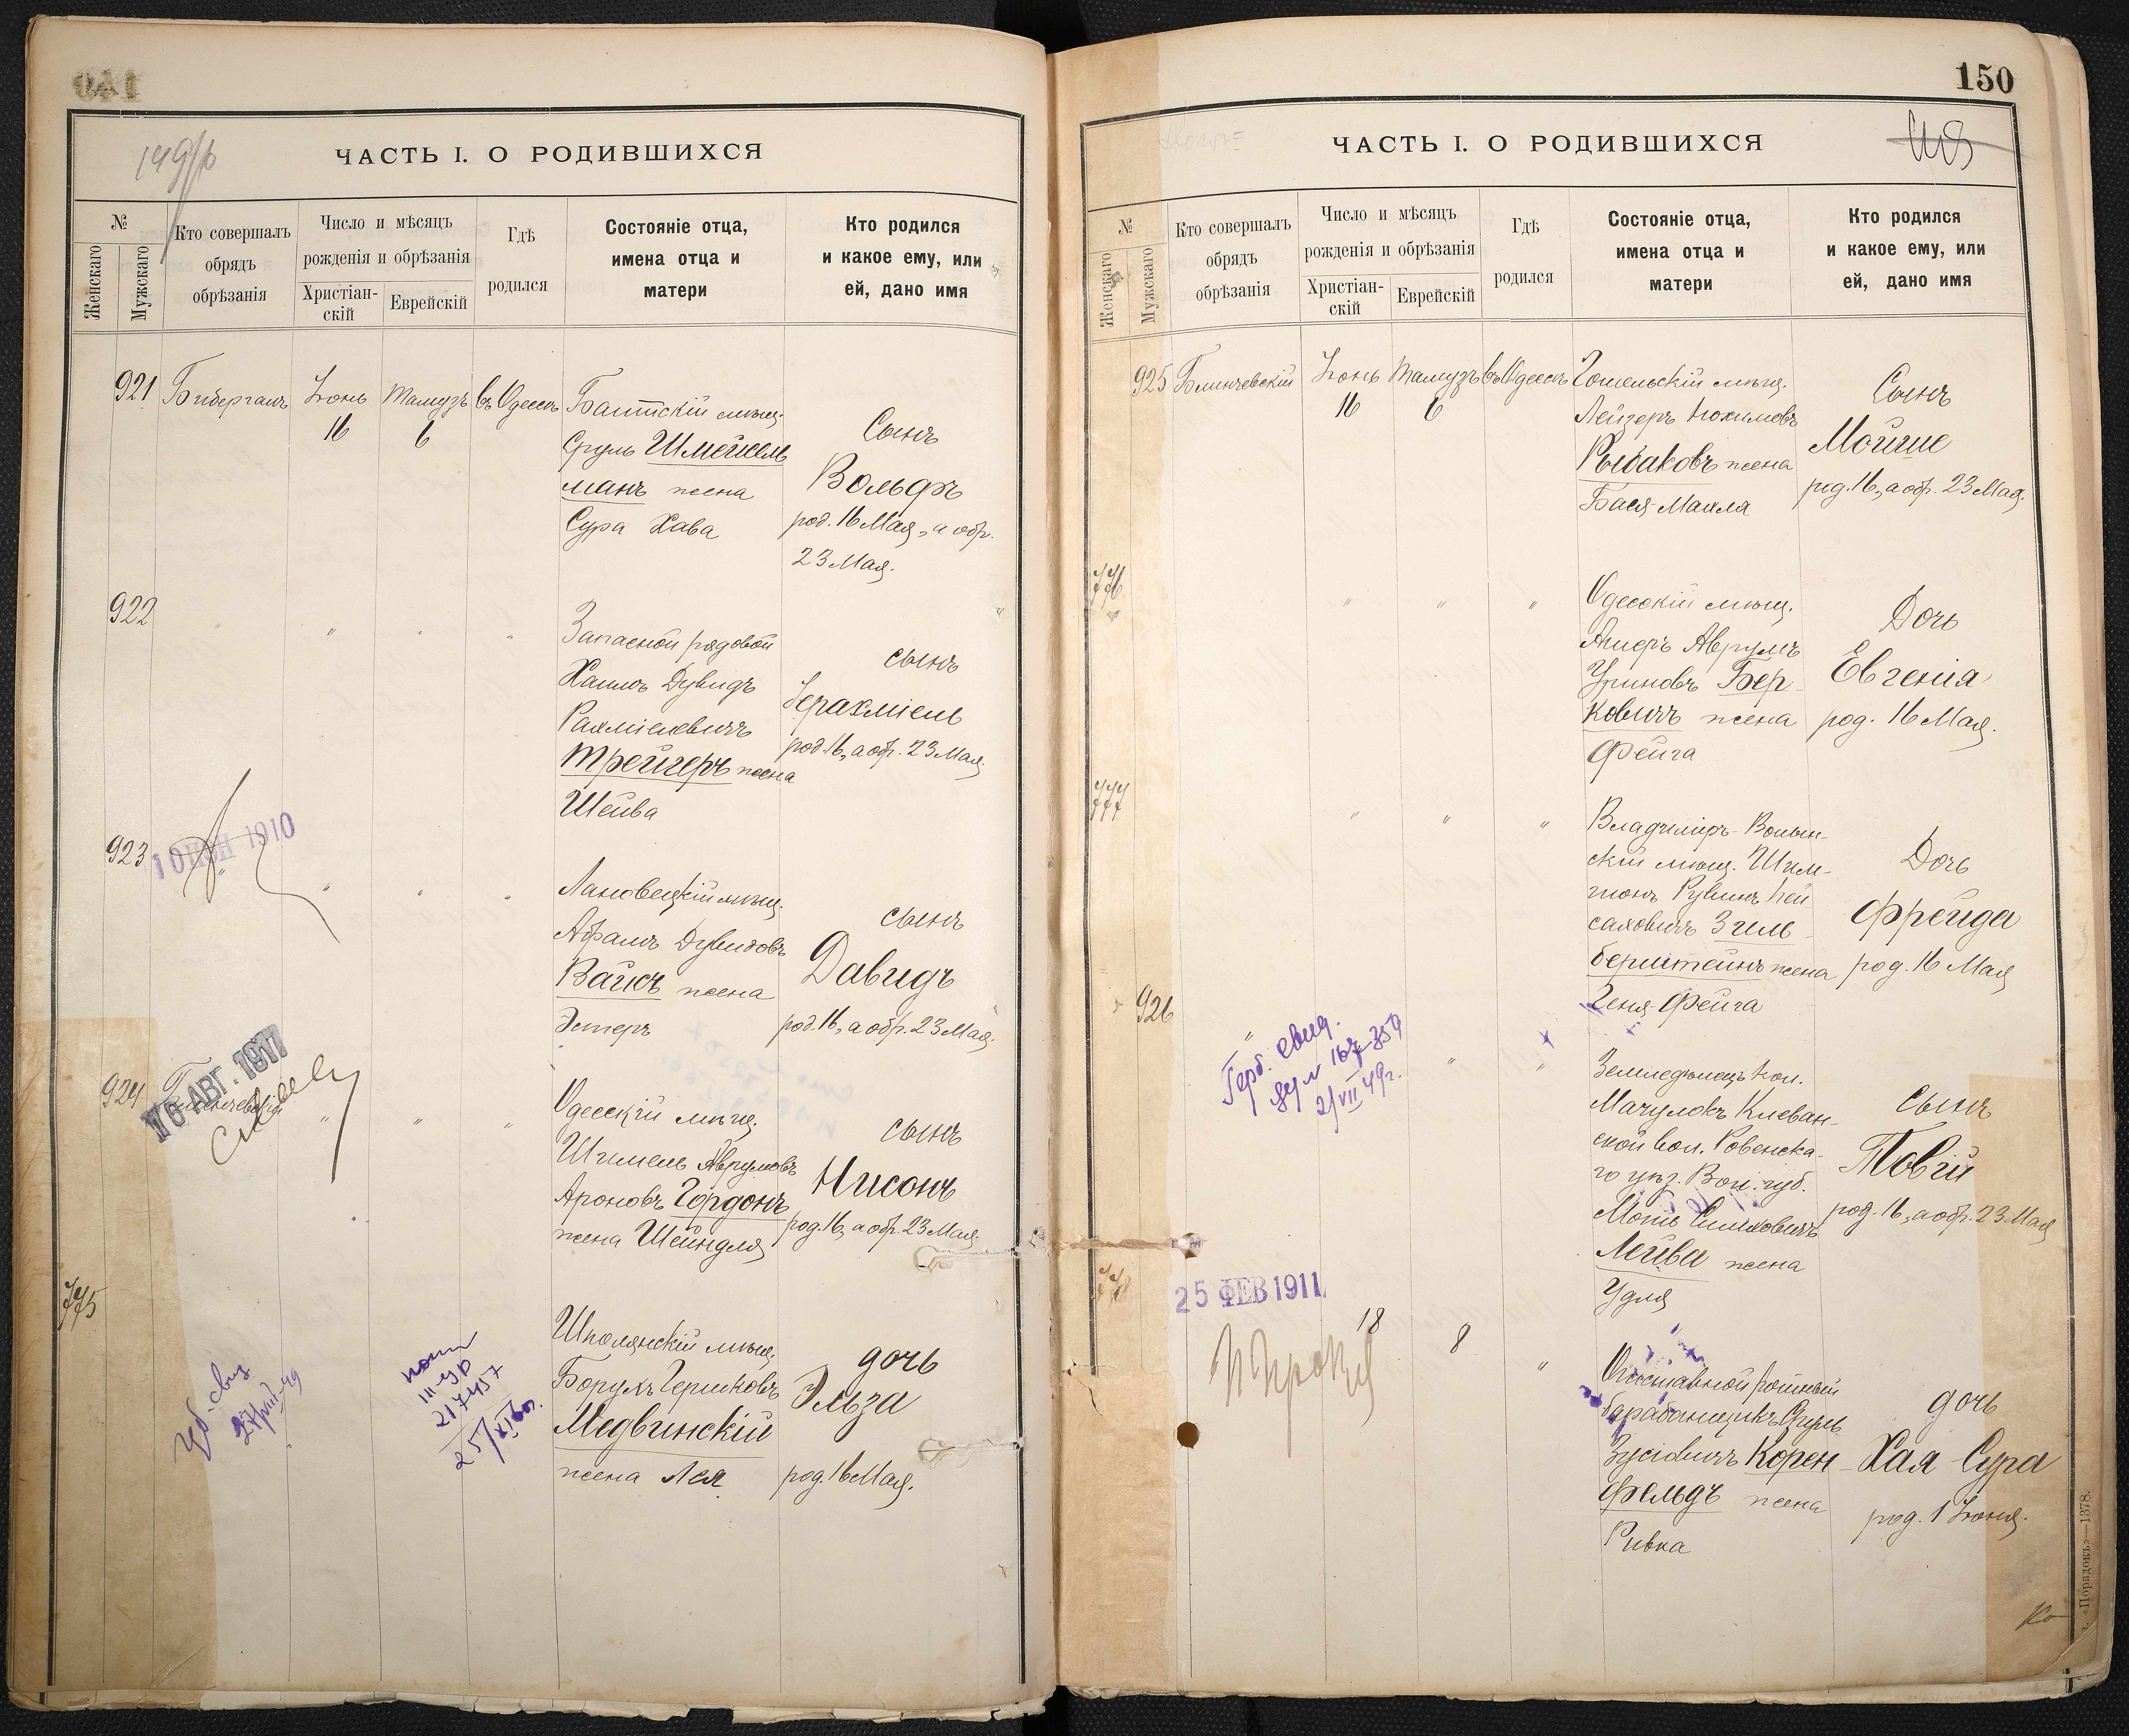 149/б
ЧАСТЬ I. О РОДИВШИХСЯ
№
Женскаго
Мужскаго
Кто совершалъ
обрядъ
обрѣзанія
Число и мѣсяцъ
рожденія и обрѣзанія
Христіан-
скій
Еврейскій
Гдѣ
родился
Состояніе отца,
имена отца и
матери
Кто родился
и какое ему, или
ей, дано имя
921 Бибергалъ Іюнь Тамузъ въ Одессѣ
16 6
Балтскій мѣщ.
Сруль Шмейсель
манъ жена
Сура Хава
Сынъ
Вольфъ
род. 16 Мая, а обр.
23 Мая.
922 " " " "
Запасной рядовой
Хаимъ Дувидъ
Рахміелевичъ
Трейгеръ жена
Шейва
сынъ
Іерахміель
род. 16, а обр. 23 Мая.
923 " " " "
10 ІЮН 1910
Лановецкій мѣщ.
Абрамъ Дувидовъ
Вайсъ жена
Эстеръ
сынъ
Давидъ
род. 16, а обр. 23 Мая.
924 Блинчевскій " " "
16 АВГ. 1917
Одесскій мѣщ.
Шмиель Аврумовъ
Ароновъ Гордонъ
жена Шейндля
сынъ
Нисонъ
род. 16, а обр. 23 Мая.
775
217457
Шполянскій мѣщ.
Борухъ Гершковъ
Медвинскій
жена Лея
дочь
Эльза
род. 16 Мая.
150
ЧАСТЬ I. О РОДИВШИХСЯ
№
Женскаго
Мужскаго
Кто совершалъ
обрядъ
обрѣзанія
Число и мѣсяцъ
рожденія и обрѣзанія
Христіан-
скій
Еврейскій
Гдѣ
родился
Состояніе отца,
имена отца и
матери
Кто родился
и какое ему, или
ей, дано имя
925 Блинчевскій Іюнь Тамузъ въ Одессѣ
16 6
Гомельскій мѣщ.
Лейзеръ Нохимовъ
Рыбаковъ жена
Бася-Малля
Сынъ
Мойше
род. 16, а обр. 23 Мая.
776 " " "
Одесскій мѣщ.
Ашеръ Аврумъ
Уриновъ Бер-
ковичъ жена
Фейга
Дочь
Евгенія
род. 16 Мая.
777 " " "
Владиміръ-Волын-
скій мѣщ. Шим-
шонъ Рувинъ Пей
саховичъ Зиль-
берштейнъ жена
Геня-Фейга
Дочь
Фрейда
род. 16 Мая
926 " " "
21/VII 49г.
Земледѣлецъ кол.
Клеван-
ской вол. Ровенска-
го уѣз. Вол. губ.
Лейва жена
Удля
сынъ
Товій
род. 16, а обр. 23 Мая
778
25 ФЕВ 1911
18 8 "
Отставной ротный
барабанщикъ Сруль
Зусіовичъ Корен-
фельдъ жена
Ривка
дочь
Хая Сура
род. 1 Іюня.
«Порядокъ»—1378.